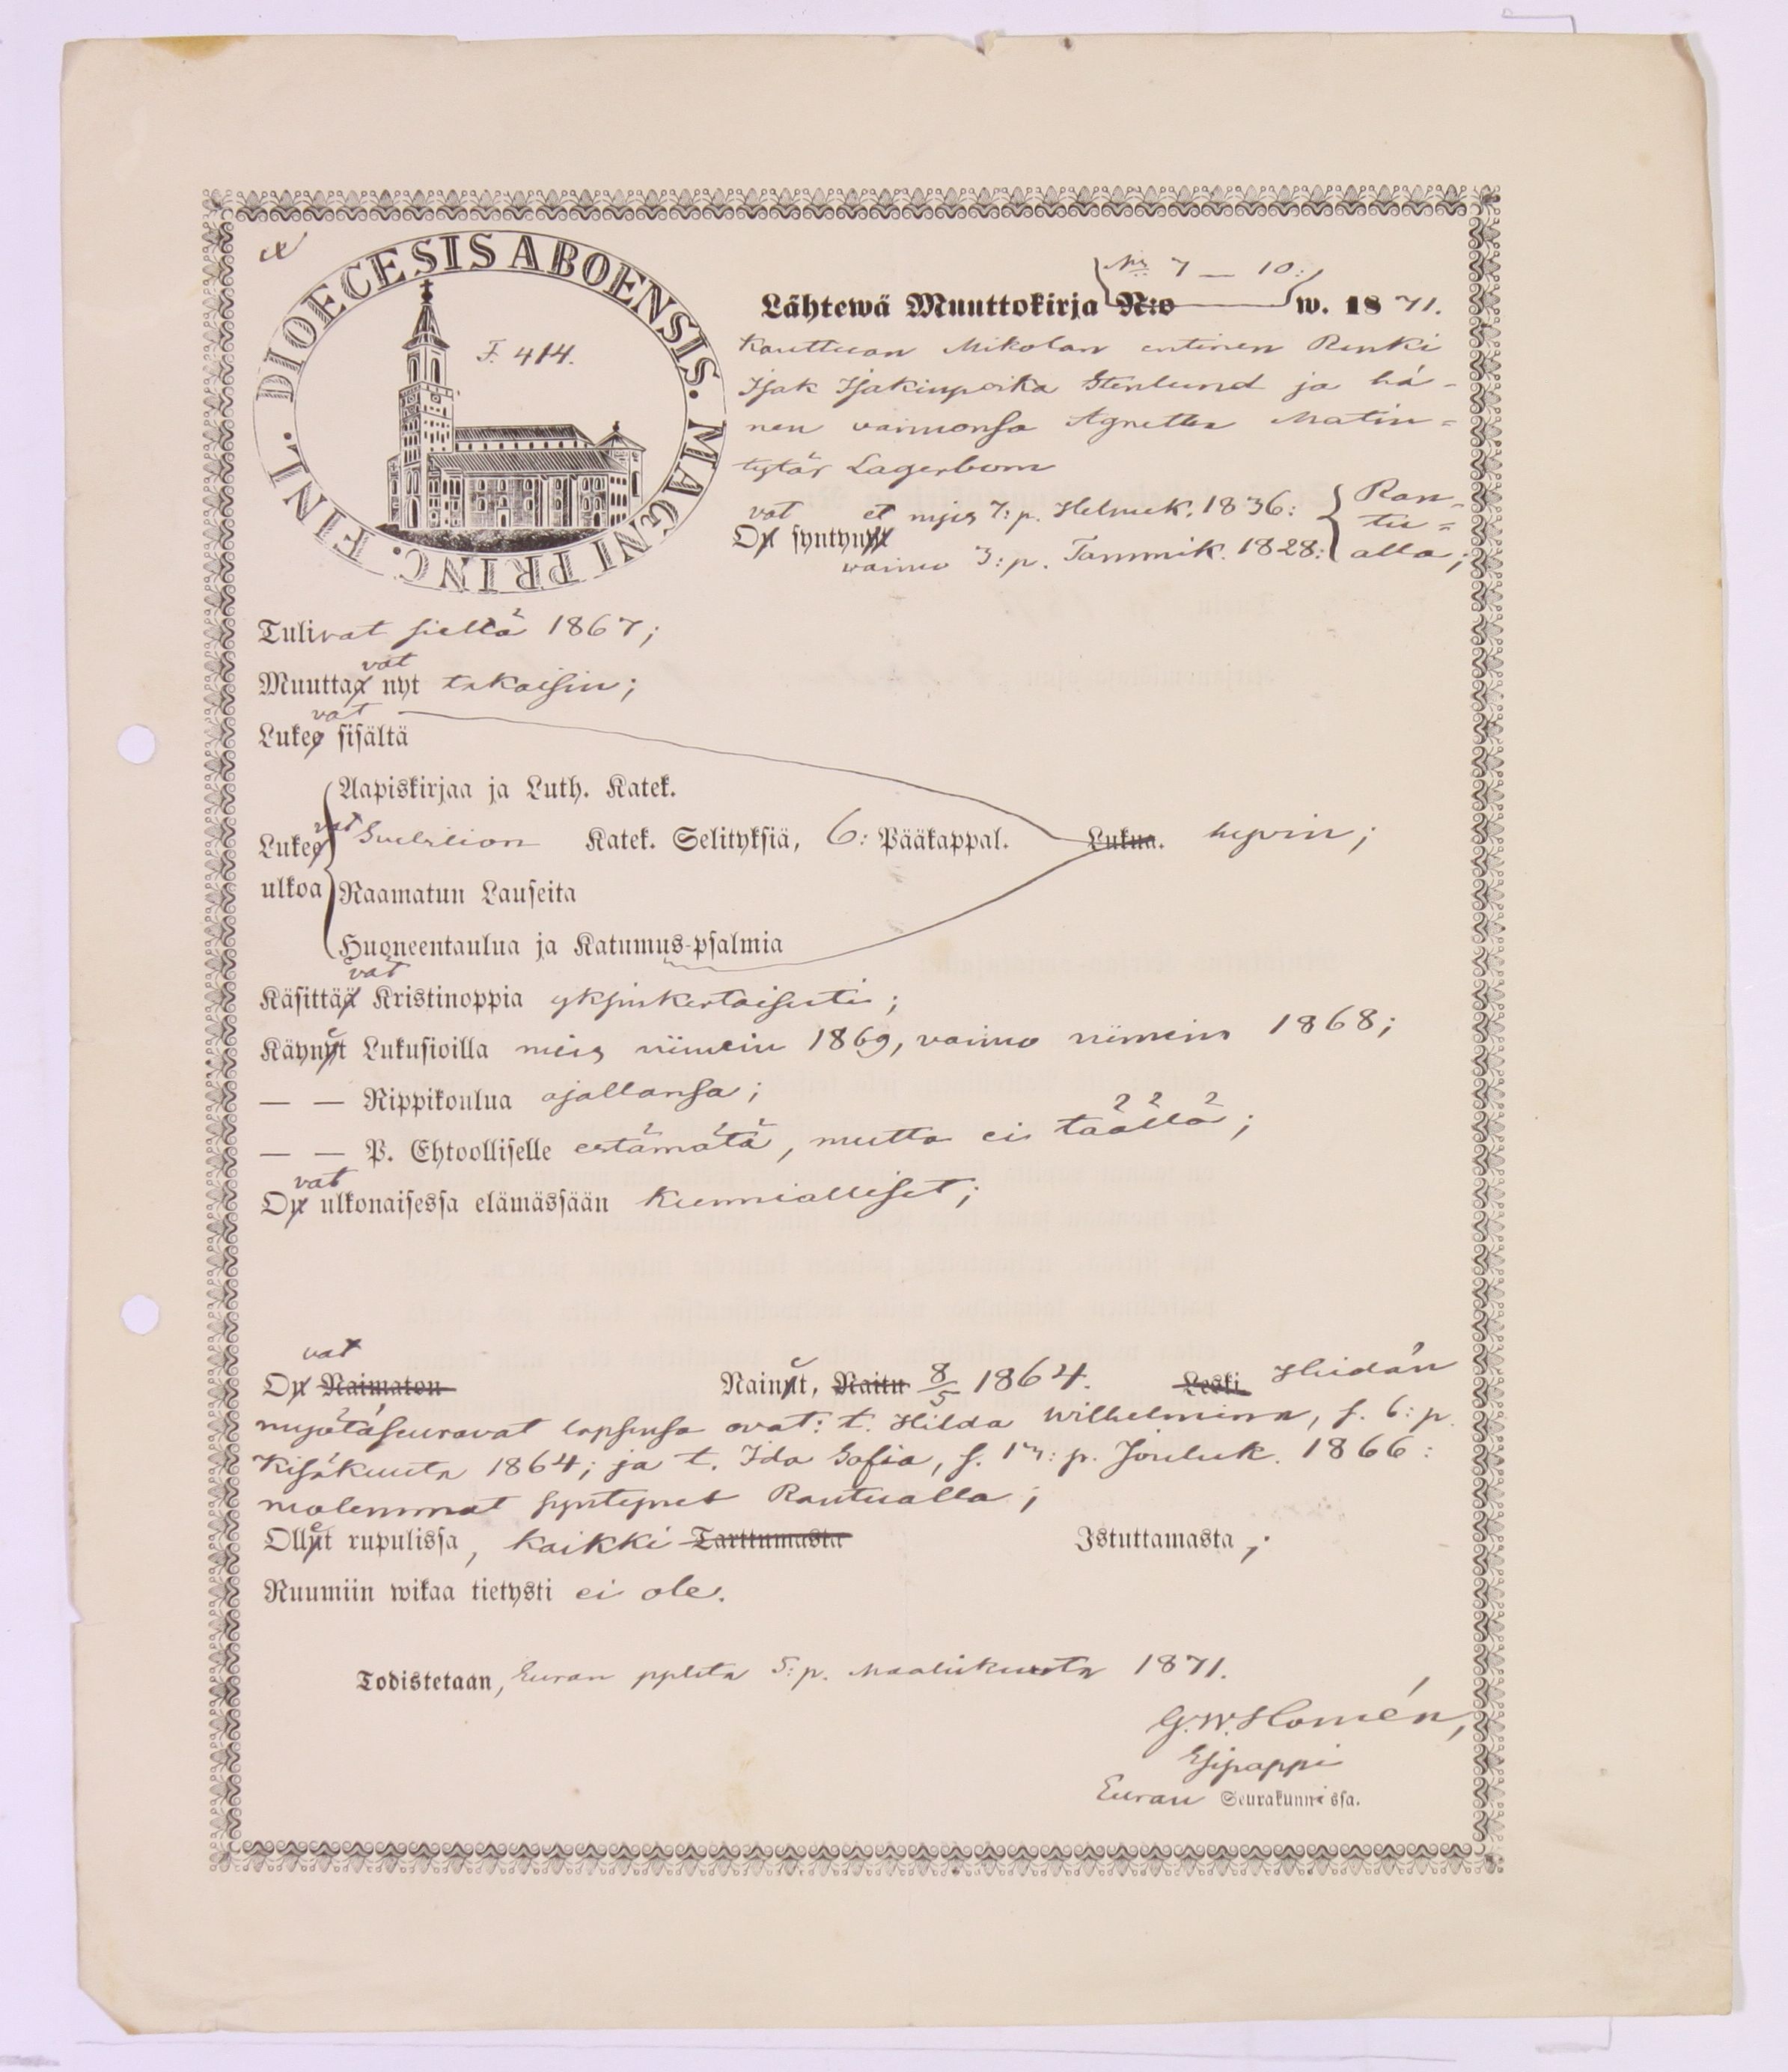 DIOECESIS ABOENSIS. MAGNI PRINC. FINL.
F. 414.
№ 7 — 10:
Lähtewä Muuttokirja N:o w. 1871.
Kauttuan Mikolan entinen Renki
Isak Isakinpoika Stenlund ja hä-
nen vaimonsa Agnetta Matin-
tytär Lagerbom
Ovat syntynet mies 7:p. Helmik. 1836: Ran-
tu-
vaimo 3:p. Tammik. 1828: alla;
Tulivat sieltä 1867;
Muuttavat nyt takaisin;
Lukevat sisältä
Aapiskirjaa ja Luth. Katek.
Lukevat Svebilion Katek. Selityksiä, 6: Pääkappal. Lukua. hyvin;
ulkoa Raamatun Lauseita
Huoneentaulua ja Katumus-psalmia
Käsittävät Kristinoppia yksinkertaisesti;
Käynet Lukusioilla mies viimein 1869, vaimo viimein 1868;
— — Rippikoulua ajallansa;
— — P. Ehtoolliselle estämätä, mutta ei täällä;
Ovat ulkonaisessa elämässään kunnialliset;
Ovat Naimaton Nainet, Naitu 8/5 1864. Leski Heidän
myötäseuravat lapsensa ovat: t. Hilda Wilhelmina, s. 6:p.
Kesäkuuta 1864; ja t. Ida Sofia, s. 13:p. Jouluk. 1866:
molemmat syntynet Rantualla;
Ollet rupulissa, kaikki Tarttumasta Istuttamasta;
Ruumiin wikaa tietysti ei ole.
Todistetaan, Euran pplsta 5:p. Maaliskuuta 1871.
G.W. Homén,
Esipappi
Euran Seurakunnissa.